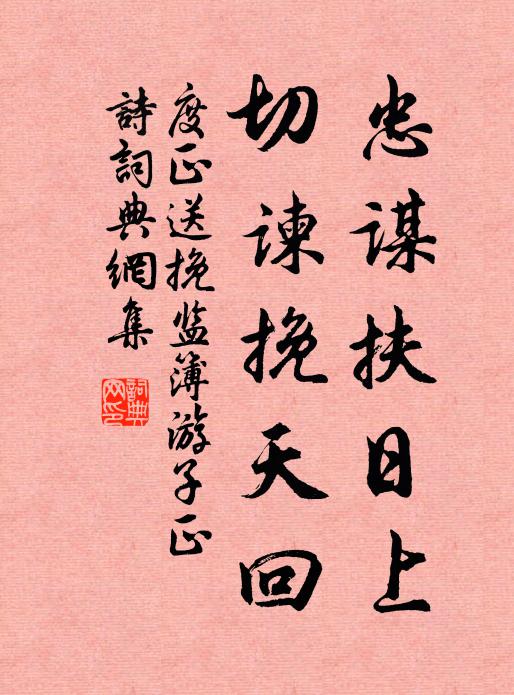 忠謀扶日上
切諫挽天回
度正送挽监簿游子正
詩詞典網集
詞典网印